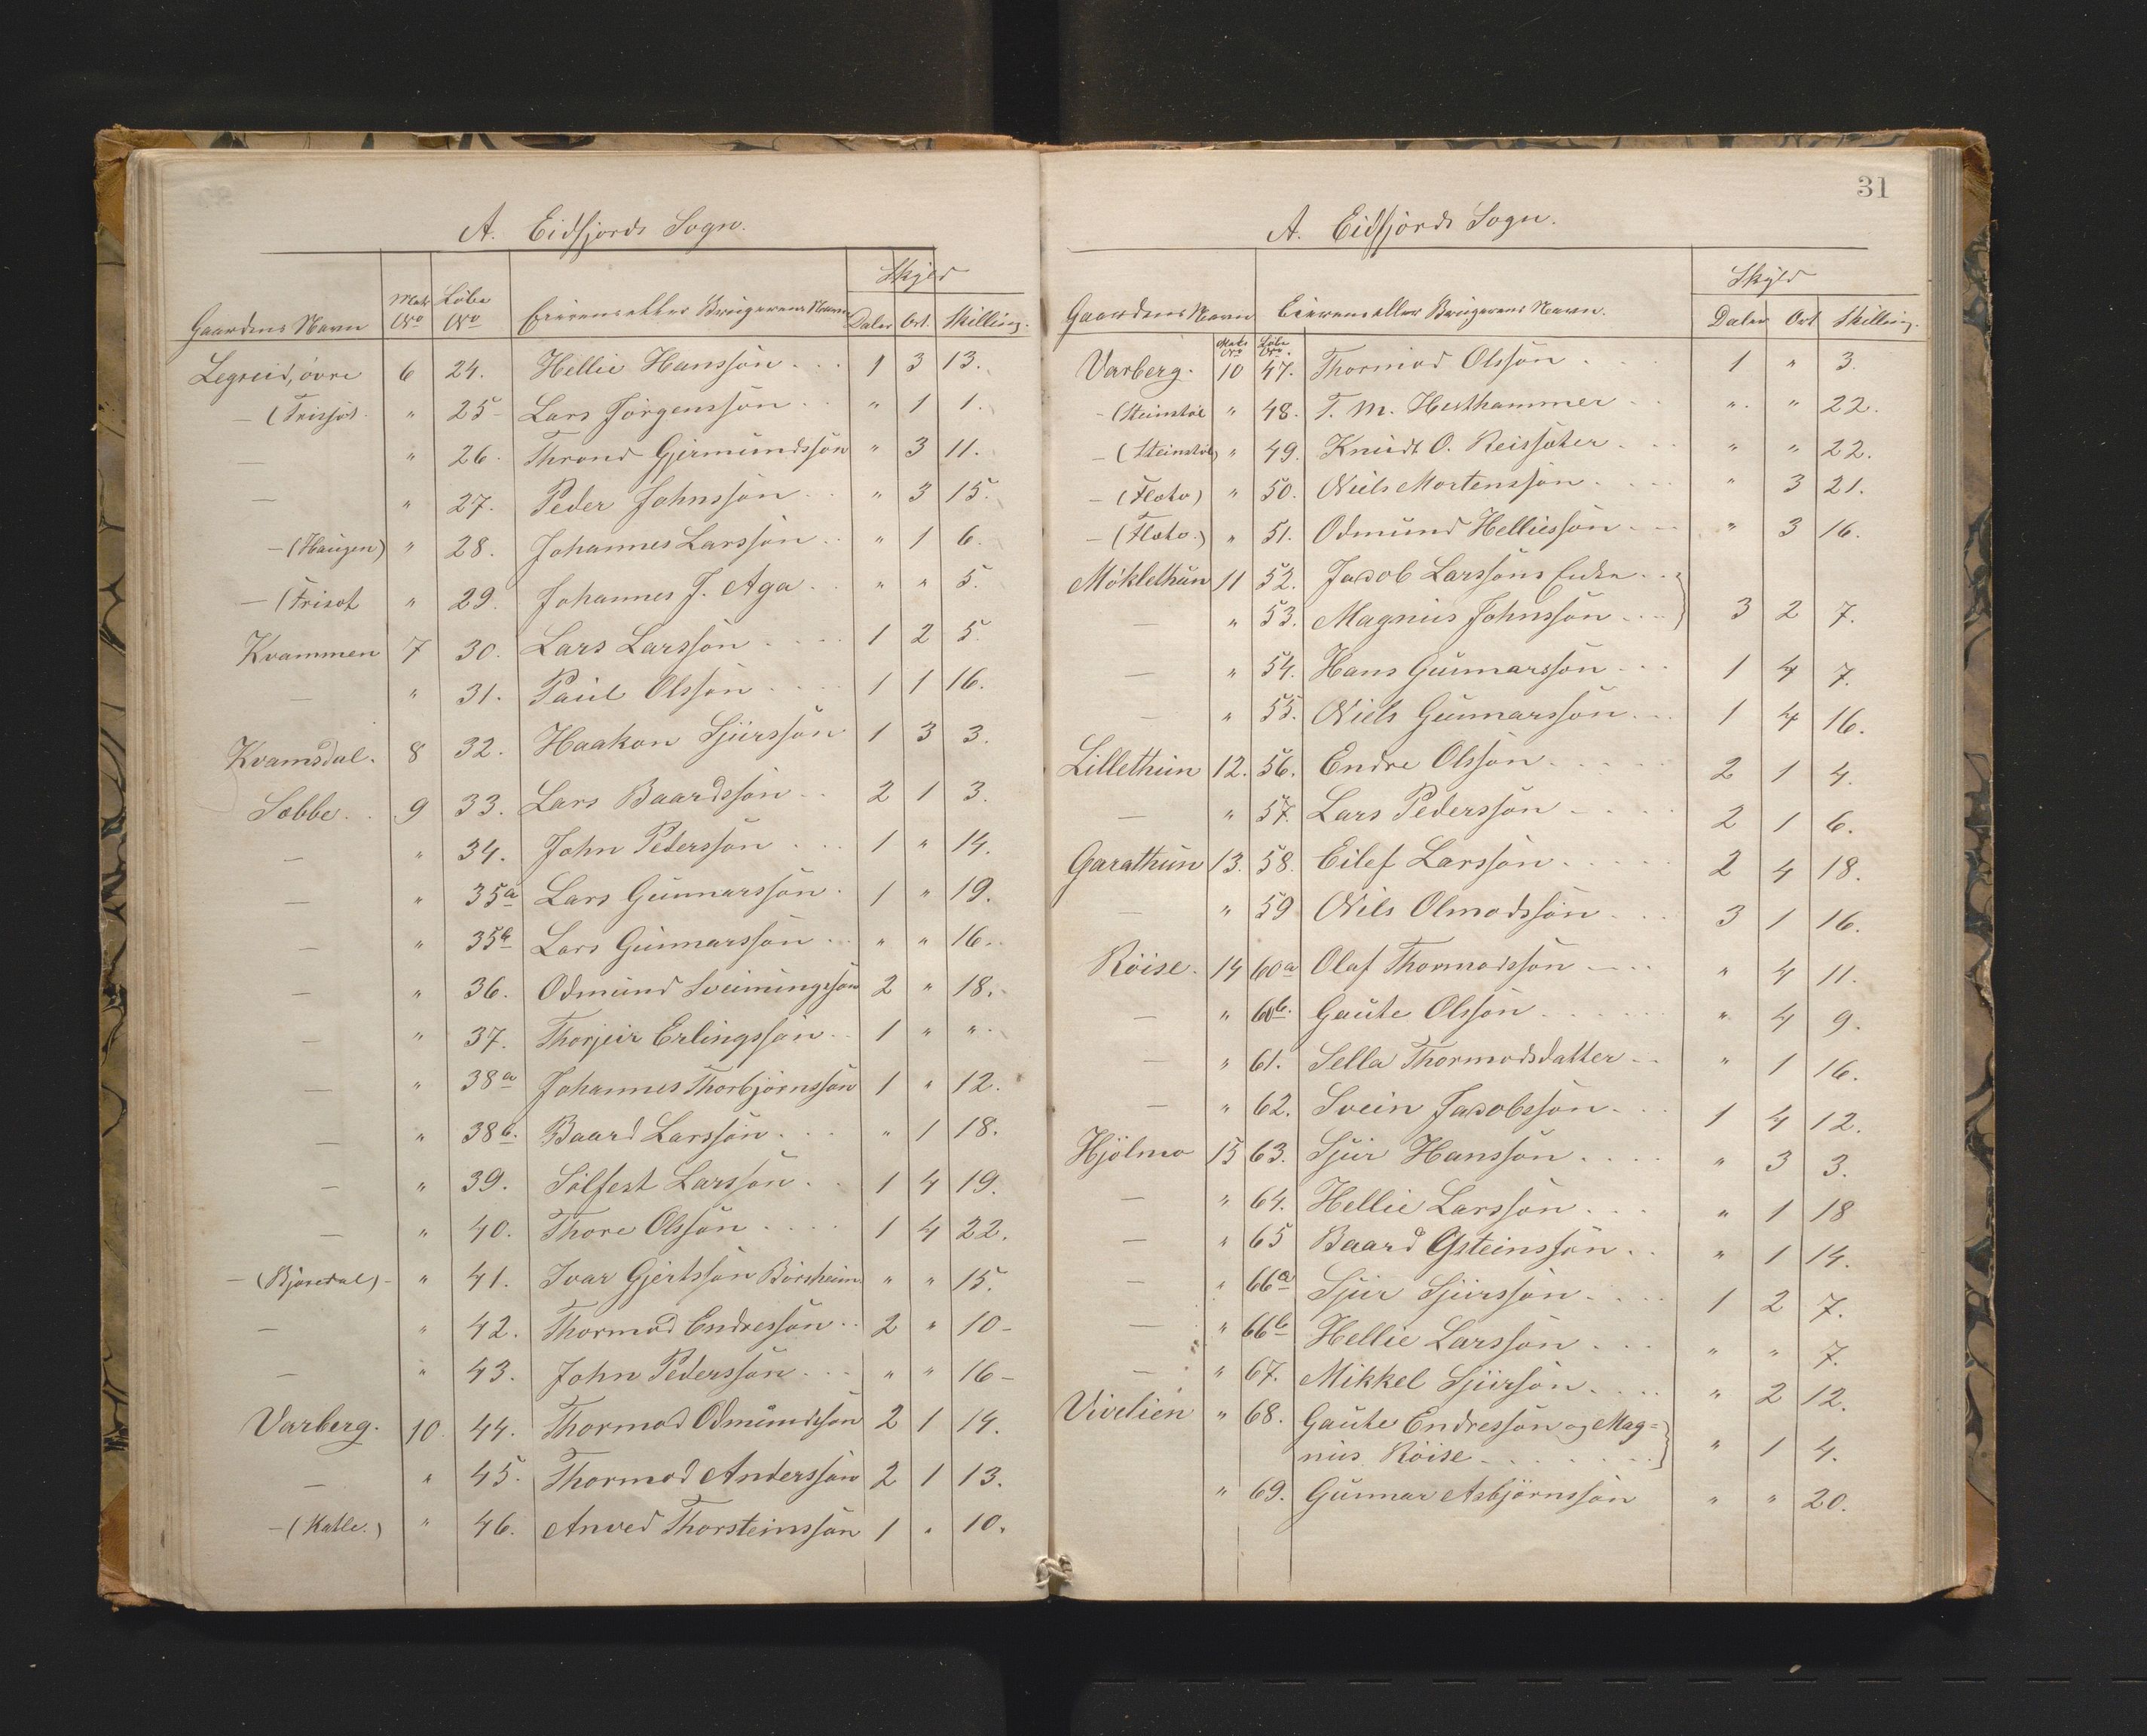 A. Eidfjords Sogn.
Skyld
Gaardens Navn Matr No Löbe No Eierens eller Brugerens Navn Daler Ort. Skilling.
Legreid, övre 6 24. Hellie Hansson 1 3 13.
— (Trisjöt " 25 Lars Jörgensson " 1 1.
— " 26. Thrond Gjermundsson " 3 11.
— " 27. Peder Johnsson " 3 15.
— (Haugen) " 28. Johannes Larsson " 1 6.
— (Frisöt " 29. Johannes J. Aga " " 5.
Kvammen 7 30. Lars Larsson 1 2 5
— " 31. Paul Olsson 1 1 16.
Kvamsdal. 8 32. Haakon Sjursson 1 3 3.
Sæbbe. 9 33. Lars Baardsson 2 1 3.
— " 34. John Pedersson 1 " 14.
— " 35a Lars Gunnarsson 1 " 19.
— " 35b Lars Gunnarsson " " 16.
— " 36. Odmund Sveinungsson 2 " 18.
— " 37. Thorjeir Erlingsson 1 " ".
— " 38a Johannes Thorbjörnsson 1 " 12.
— " 38b. Baard Larsson " 1 18.
— " 39. Sölfest Larsson 1 4 19.
— " 40. Thore Olsson 1 4 22.
— (Bjoredal) " 41. Ivar Gjertsson Börsheim " " 15.
— " 42. Thormod Endresson 2 " 10
— " 43. John Pedersson " " 16
Varberg. 10 44. Thormod Odmundsson 2 1 14.
— " 45. Thormod Andersson 2 1 13.
— (Katle.) " 46. Anved Thorsteinsson 1 " 10.
31
A. Eidfjords Sogn.
Skyld
Gaardens Navn Eierens eller Brugerens Navn. Daler Ort Skilling.
Matr No Löbe No.
Varberg. 10 47. Thormod Olsson 1 " 3.
— (Steinstöl " 48. T. M. Hesthammer " " 22.
— (Steinstöl) " 49. Knudt O. Reissæter " " 22.
— (Flato) " 50. Niels Mortensson " 3 21.
— (Flato.) " 51. Odmund Helliesson " 3 16.
Möklethun 11 52. Jacob Larssons Enke
— " 53. Magnus Johnsson 3 2 7.
— " 54. Hans Gunnarsson 1 4 7.
— " 55. Niels Gunnarsson 1 4 16.
Lillethun 12. 56. Endre Olsson 2 1 4.
— " 57. Lars Pedersson 2 1 6.
Garathun 13. 58. Eilef Larsson 2 4 18.
— " 59 Nils Olmodsson 3 1 16.
Röise. 14 60a Olaf Thormodsson " 4 11.
— " 60b. Gaute Olsson " 4 9.
— " 61. Sella Thormodsdatter " 1 16.
— " 62. Svein Jacobsson 1 4 12.
Hjölmo 15 63. Sjur Hansson " 3 3.
— " 64. Hellie Larsson " 1 18
— " 65 Baard Østeinsson " 1 14.
— " 66a Sjur Sjursson 1 2 7.
— " 66b Hellie Larsson " " 7.
— " 67. Mikkel Sjurson " 2 12.
Vivelien " 68. Gaute Endresson og Mag=
nus Röise " 1 4.
" 69. Gunnar Asbjörnsson " " 20.